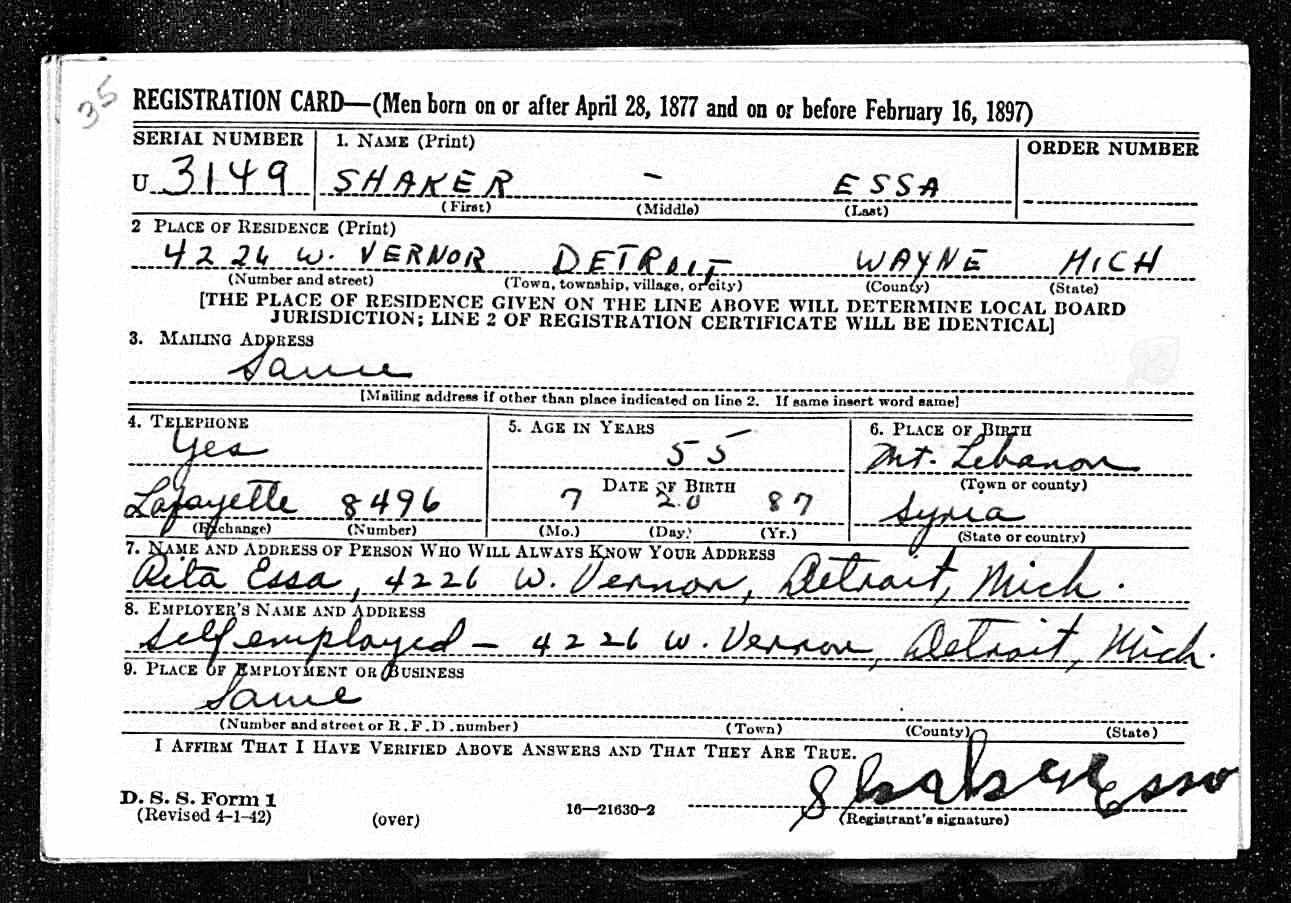 35
REGISTRATION CARD—(Men born on or after April 28, 1877 and on or before February 16, 1897)
SERIAL NUMBER 1. NAME (Print) ORDER NUMBER
U 3149 SHAKER - ESSA
(First) (Middle) (Last)
2 PLACE OF RESIDENCE (Print)
4226 W. VERNOR DETROIT WAYNE MICH
(Number and street) (Town, township, village, or city) (County) (State)
[THE PLACE OF RESIDENCE GIVEN ON THE LINE ABOVE WILL DETERMINE LOCAL BOARD
JURISDICTION; LINE 2 OF REGISTRATION CERTIFICATE WILL BE IDENTICAL]
3. MAILING ADDRESS
Same
[Mailing address if other than place indicated on line 2. If same insert word same]
4. TELEPHONE 5. AGE IN YEARS 6. PLACE OF BIRTH
Yes 55 Mt. Lebanon
DATE OF BIRTH (Town or county)
Lafayette 8496 7 20 87 Syria
(Exchange) (Number) (Mo.) (Day) (Yr.) (State or country)
7. NAME AND ADDRESS OF PERSON WHO WILL ALWAYS KNOW YOUR ADDRESS
Rita Essa, 4226 W. Vernor, Detroit, Mich.
8. EMPLOYER'S NAME AND ADDRESS
Self employed - 4226 W. Vernor, Detroit, Mich.
9. PLACE OF EMPLOYMENT OR BUSINESS
Same
(Number and street or R. F. D. number) (Town) (County) (State)
I AFFIRM THAT I HAVE VERIFIED ABOVE ANSWERS AND THAT THEY ARE TRUE.
Shaker Essa
D. S. S. Form 1
(Revised 4-1-42) (over) 16—21630-2 (Registrant's signature)